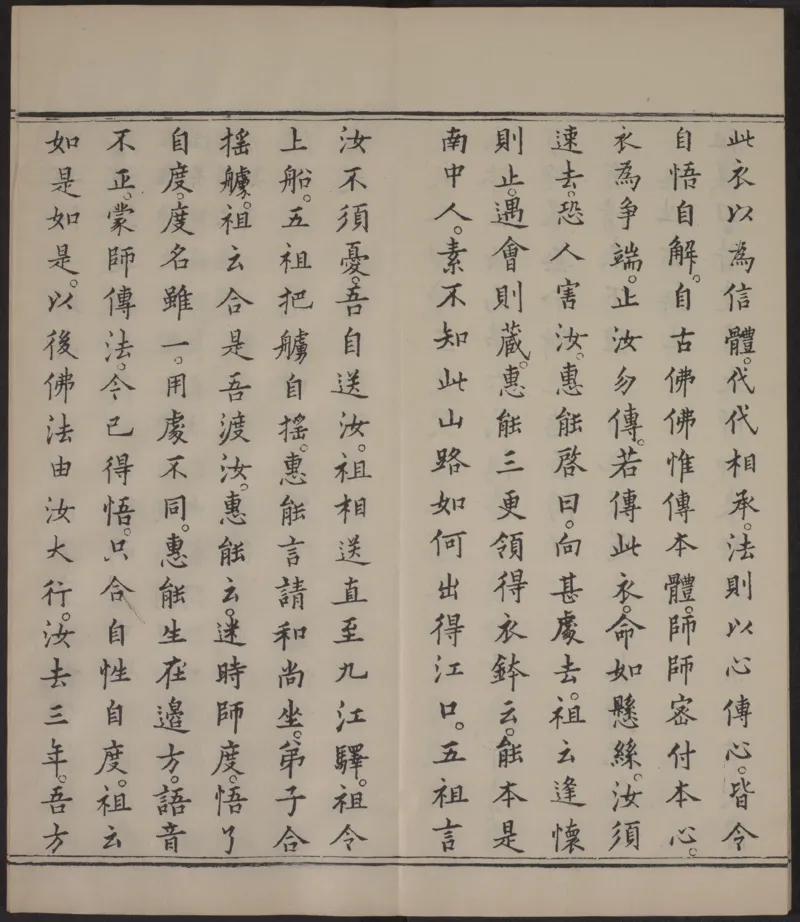 此衣以為信體。代代相承。法則以心傳心。皆令
自悟自解。自古佛佛惟傳本體。師師密付本心。
衣為爭端。止汝勿傳。若傳此衣。命如懸絲。汝須
速去。恐人害汝。惠能啓曰。向甚處去。祖云逢懷
則止。遇會則藏。惠能三更領得衣鉢云。能本是
南中人。素不知此山路如何出得江口。五祖言
汝不須憂。吾自送汝。祖相送直至九江驛。祖令
上船。五祖把艣自摇。惠能言請和尚坐。弟子合
摇艣。祖云合是吾渡汝。惠能云。迷時師度。悟了
自度。度名雖一。用處不同。惠能生在邊方。語音
不正。蒙師傳法。今已得悟。只合自性自度。祖云
如是如是。以後佛法由汝大行。汝去三年。吾方